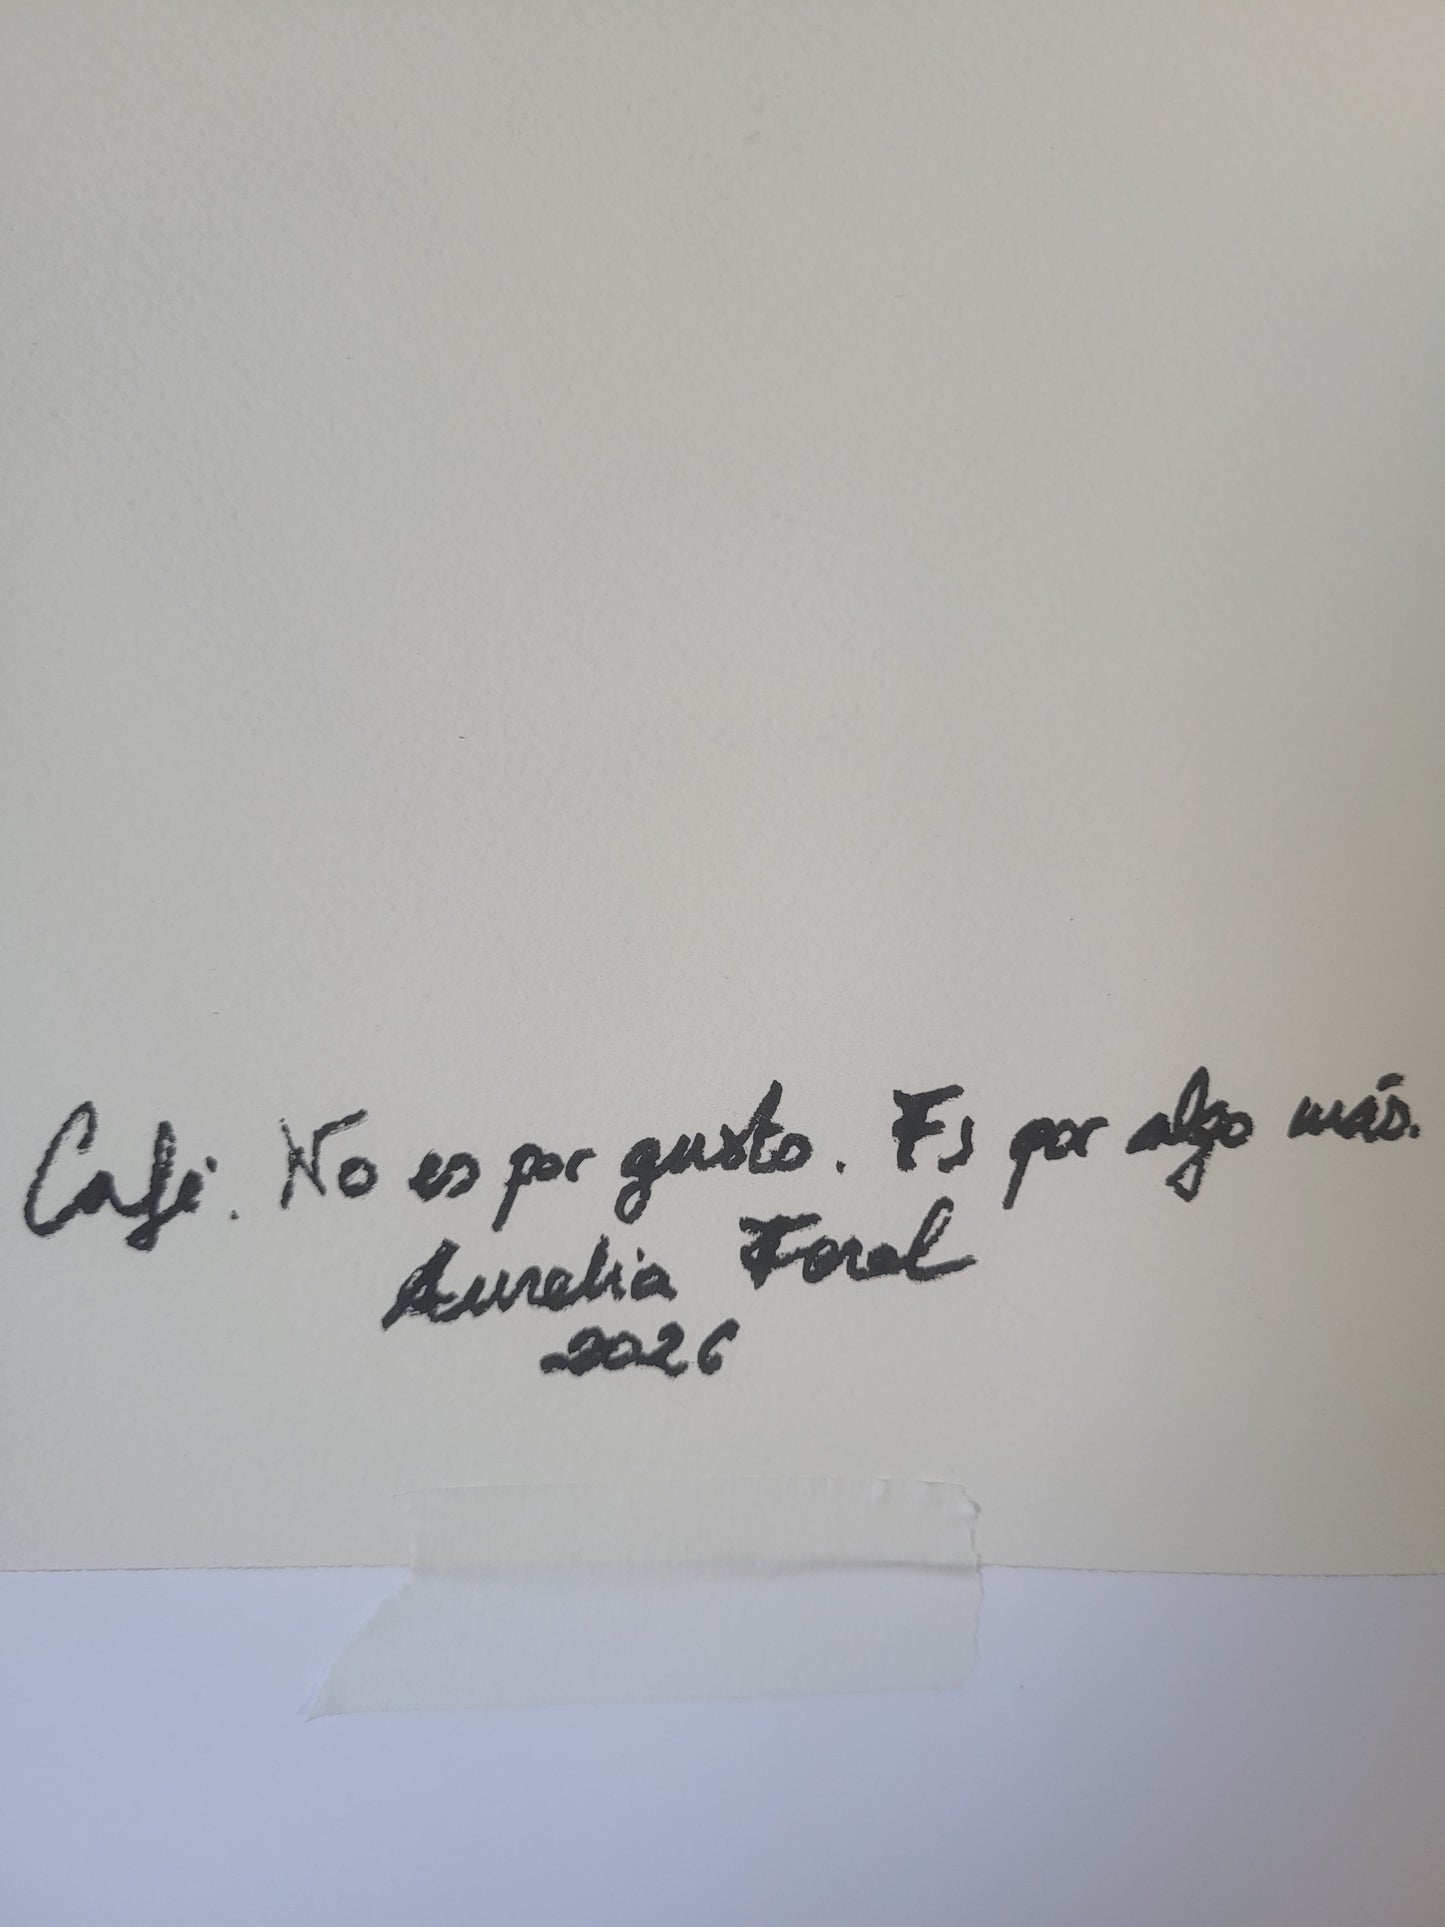 Café. No es por gusto. Es por algo más.
Aurelia Forel
2026